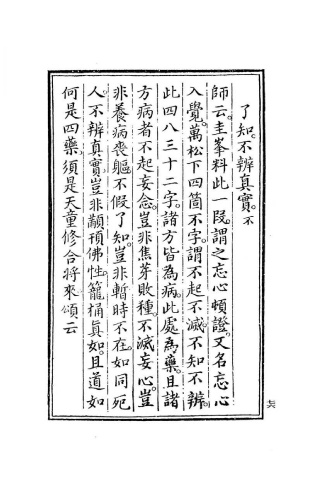 了知。不辨真實。不
師云。圭峯料此一段。謂之忘心頓證。又名忘心
入覺。萬松下四箇不字。謂不起不滅。不知不辨。
此四八三十二字。諸方皆為病。此處為藥。且諸
方病者。不起妄念。豈非焦芽敗種。不滅妄心。豈
非養病喪軀。不假了知。豈非暫時不在。如同死
人。不辨真實。豈非顢頇佛性。籠桶真如。且道如
何是四藥。須是天童修合將來。頌云